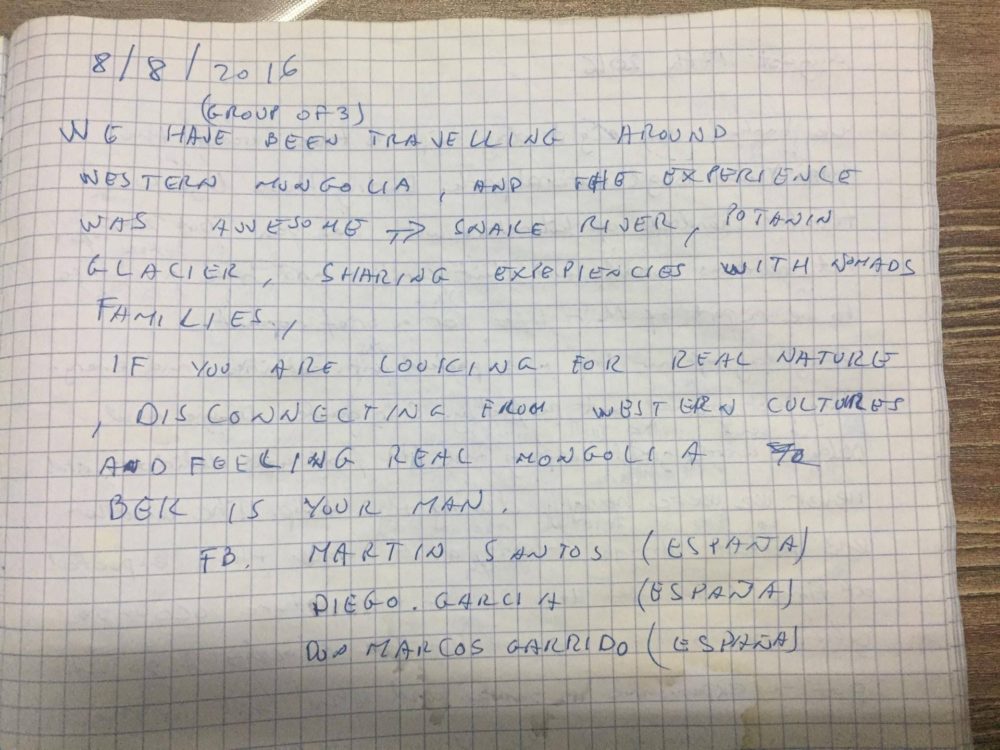 8/8/2016
(GROUP OF 3)
WE HAVE BEEN TRAVELLING AROUND
WESTERN MONGOLIA, AND THE EXPERIENCE
WAS AWESOME => SNAKE RIVER, POTANIN
GLACIER, SHARING EXPEPIENCIES WITH NOMADS
FAMILIES.,
IF YOU ARE LOOKING FOR REAL NATURE
, DISCONNECTING FROM WESTERN CULTURES
AND FEELING REAL MONGOLIA
BEK IS YOUR MAN.
FB. MARTIN SANTOS (ESPAÑA)
DIEGO. GARCIA (ESPAÑA)
DON MARCOS GARRIDO (ESPAÑA)